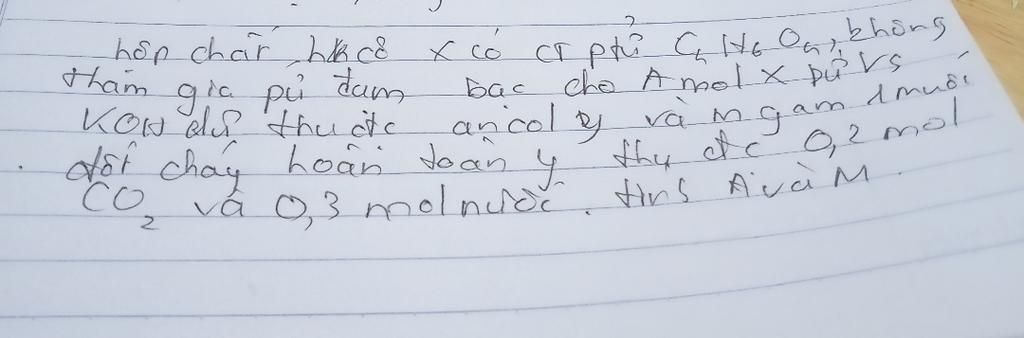 hợp chất hkcơ X có CT ptử C₅H₆O₄, không
tham gia pứ tam bạc cho A mol X pứ vs
KOH đủ thu đc ancol y và m gam 1 muối
. đốt cháy hoàn toàn y thu đc 0,2 mol
CO₂ và 0,3 mol nước. tính A và M.